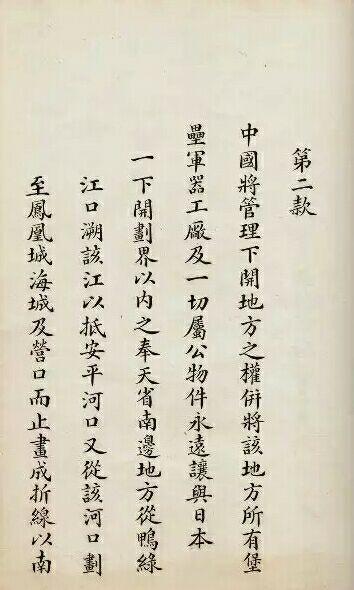 第二款
中國將管理下開地方之權併將該地方所有堡
壘軍器工廠及一切屬公物件永遠讓與日本
一下開劃界以内之奉天省南邊地方從鴨綠
江口溯該江以抵安平河口又從該河口劃
至鳳凰城海城及營口而止畫成折線以南